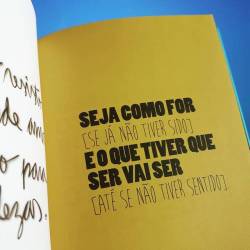 de
o
SEJA COMO FOR
[SE JÁ NÃO TIVER SIDO]
E O QUE TIVER QUE
SER VAI SER
[ATÉ SE NÃO TIVER SENTIDO]